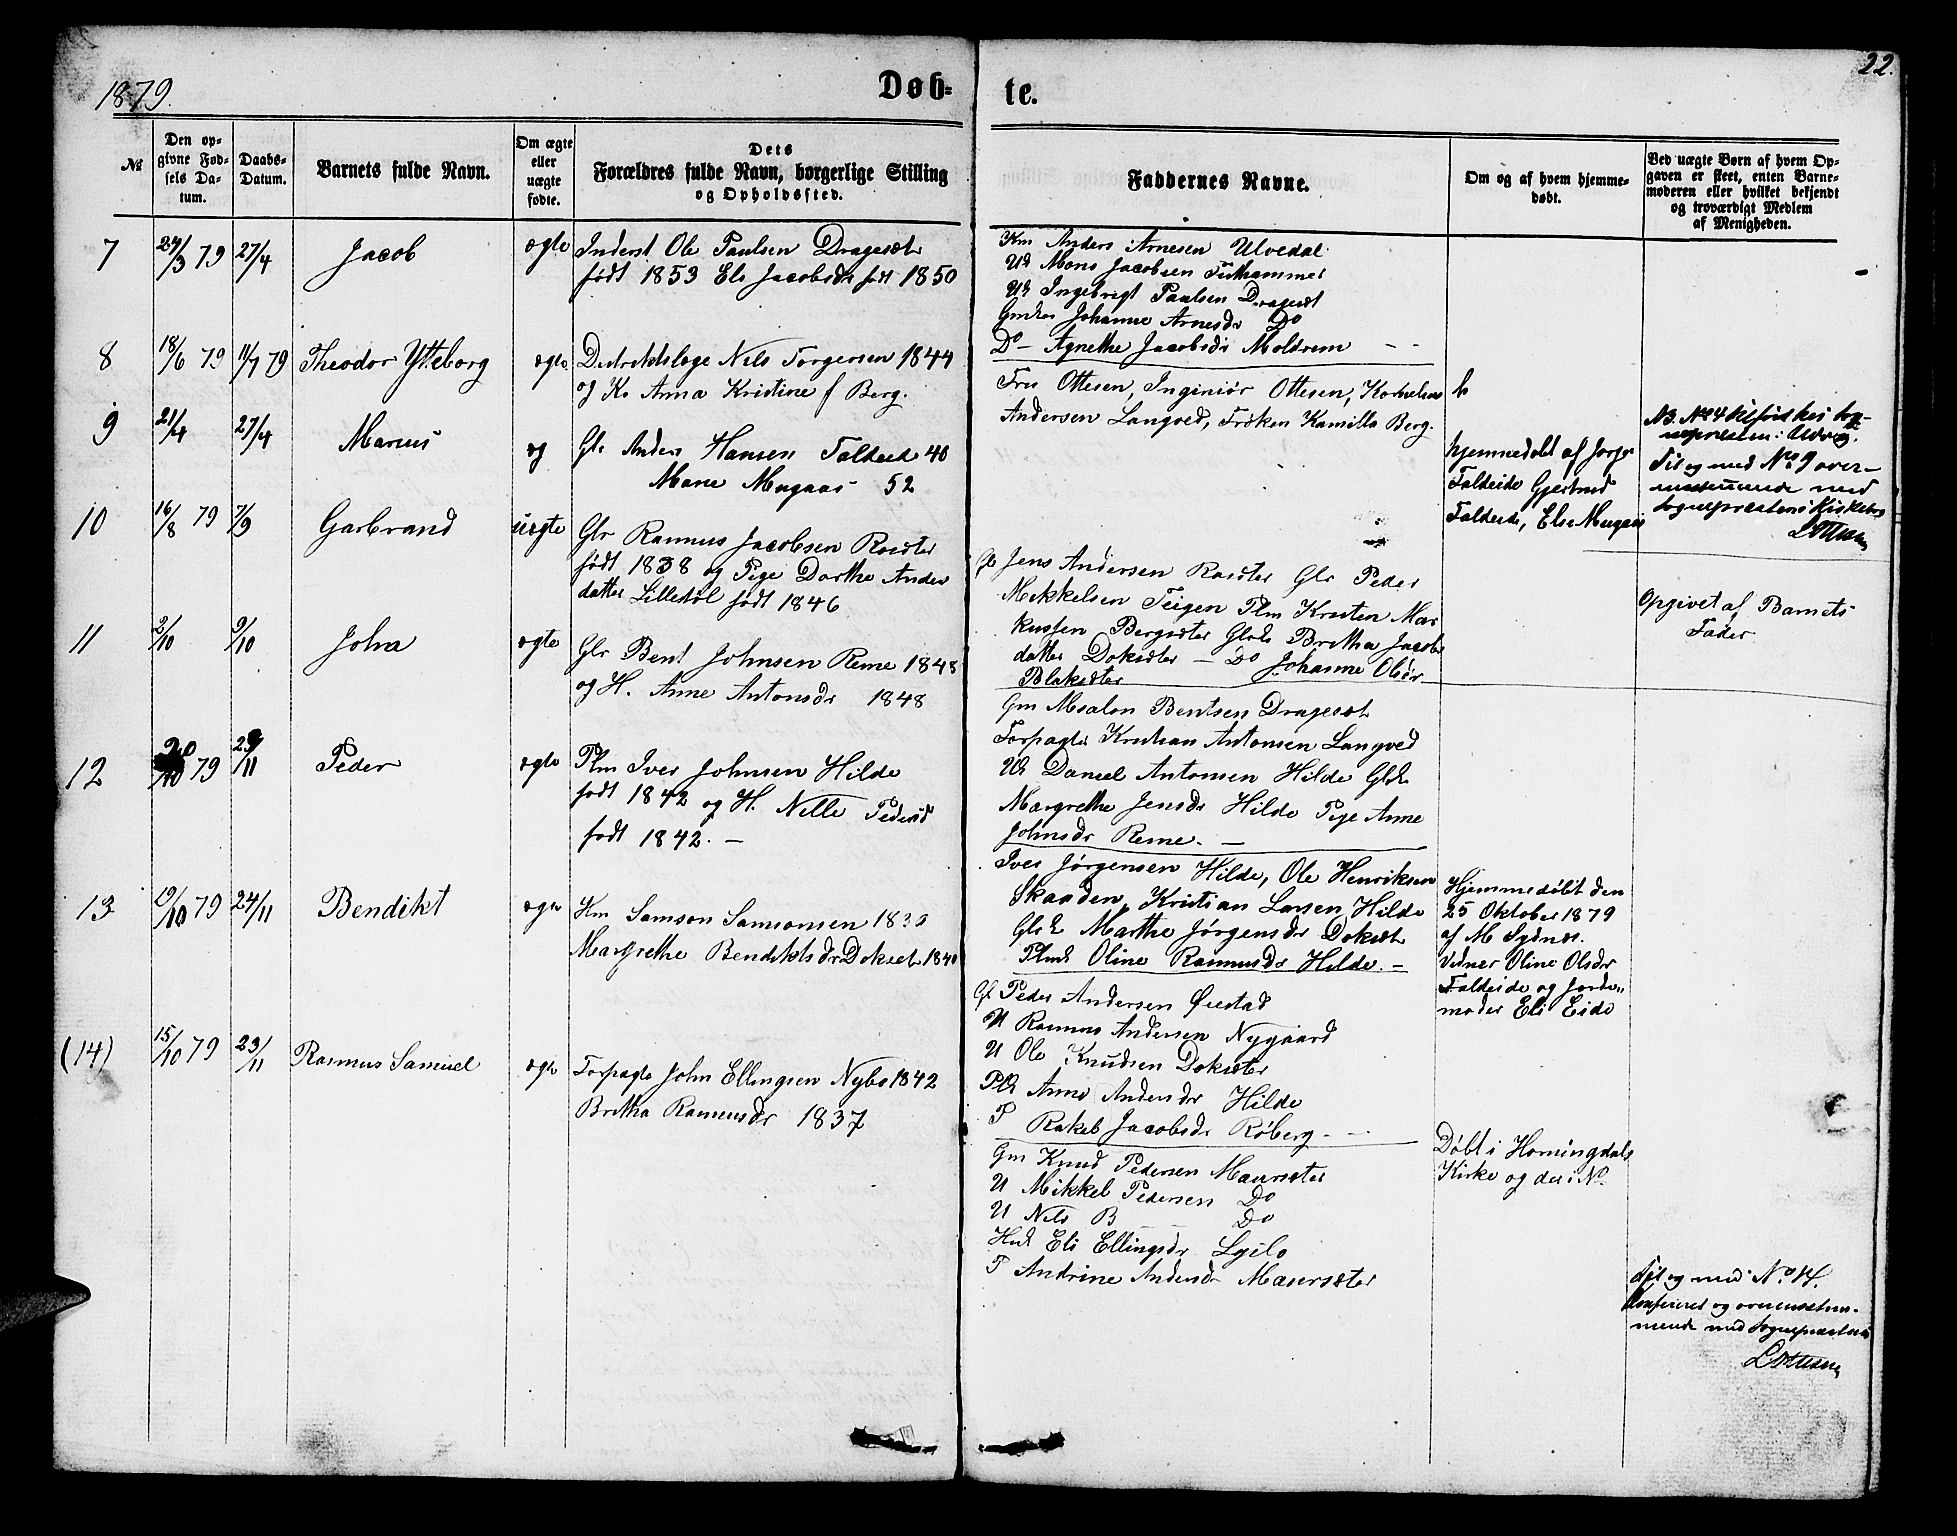 1879.
Døb-
te.
22.
№
Den op-
givne Fød-
sels Da-
tum.
Daabs-
Datum.
Barnets fulde Navn.
Om ægte
eller
uægte
fødte.
Dets
Forældres fulde Navn, borgerlige Stilling
og Opholdssted.
Faddernes Navne.
Om og af hvem hjemme-
døbt.
Ved uægte Børn af hvem Op-
gaven er skeet, enten Barne-
moderen eller hvilket bekjendt
og troværdigt Medlem
af Menigheden.
7
24/3 79
27/4
Jacob
ægte
Inderst Ole Paulsen Dragesæt
født 1853 Els Jacobsdr født 1850
Km Anders Arnesen Ulvedal
Uk Mons Jacobsen
Uk Ingebrigt Paulsen Dragesæt
Johanne Arnesdr Do
Do - Agnethe Jacobsdr Moldrem
8
18/6 79
11/7 79
Theodor Ytteborg
ægte
Distriktslæge Nils Torgersen 1844
og K. Anna Kristine f Berg.
Fru Ottesen, Ingeniør Ottesen, Kornelius
Andersen Langved, Frøken Kamilla Berg.
h
9
21/4
27/4
Marius
og
Gbr Anders Hansen Faldeide 40
Marie Mugaas 52
hjemmedøbt af
Faldeide Gjertrud
Faldeide, Else Mugaas
Til og med No 9 over-
med
Sognepræstens Kirkebog
LOttesen
10
16/8 79
7/9
Garbrand
uægte
Gbr Rasmus Jacobsen
født 1838 og Pige Dorthe Anders
datter Lillestøl født 1846
Jens Andersen Gbr Peder
Mikkelsen Teigen Plm Kristen Mar
kussen Bergsæter Gbrk Britha Jacobs
datter Doksæter - Do Johanne Olsdr
Blaksæter
Opgivet af Barnets
Fader
11
2/10
9/10
John
ægte
Gbr Bent Johnsen Reme 1848
og H. Anne Antonsdr 1848
Gm Absalon Bentsen Dragesæt
Forpagter Kristian Antonsen Langved
Uk Daniel Antonsen Hilde Gbrk
Margrethe Jensdr Hilde Pige Anne
Johnsdr Reme. -
12
/10 79
23/11
Peder
ægte
Plm Iver Johnsen Hilde
født 1842 og H. Nille Pedersd
født 1842. -
Iver Jørgensen Hilde, Ole Henriksen
Skaaden, Kristian Larsen Hilde
Gbrk Marthe Jørgensdr Doksæt
Plmk Oline Rasmusdr Hilde. -
13
19/10 79
24/11
Bendikt
ægte
Km Samson Samsonsen
Margrethe Bendiktsdr Dokset 1840
Gbr Peder Andersen Ørestad
U Rasmus Andersen Nygaard
U Ole Knudsen Doksæter
Plk Anne Andersdr Hilde
P Rakel Jacobsdr Røberg
Hjemmedøbt den
25 Oktober 1879
af M Sydnes.
Vidner Oline Olsdr
Faldeide og Jorde-
moder Eli Eide
(14)
15/10 79
23/11
Rasmus Samuel
ægte
Forpagte John Ellingsen Nybø 1842
Britha Rasmusdr 1837
Gm Knud Pedersen Maursæter
U Mikkel Pedersen Do
U Nils B Do
Eli Ellingsdr
P Andrine Andersdr Maursæter
Døbt i Horningdals
Kirke og der i No.
Til og med No 14.
Konfereret og overensstem-
mende med Sognepræstens
LOttesen